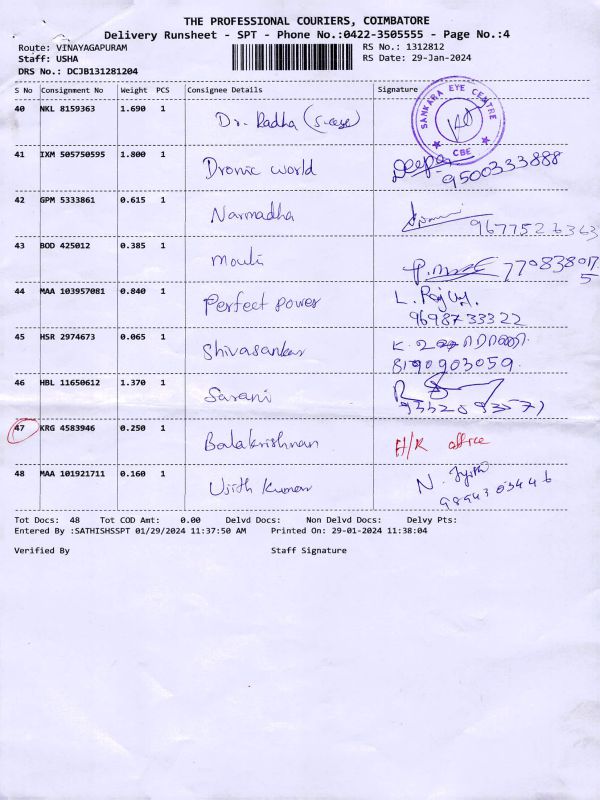 THE PROFESSIONAL COURIERS, COIMBATORE
Delivery Runsheet - SPT - Phone No.:0422-3505555 - Page No.:4
Route: VINAYAGAPURAM
RS No.: 1312812
Staff: USHA
RS Date: 29-Jan-2024
DRS No.: DCJB131281204
S No Consignment No Weight PCS Consignee Details Signature
SANKARA EYE CENTRE
CBE
40 NKL 8159363 1.690 1 Dr. Radha
41 IXM 505750595 1.800 1 Dronic world Deepa
9500333888
42 GPM 5333861 0.615 1 Narmadha
43 BOD 425012 0.385 1 Mouli
44 MAA 103957081 0.840 1 Perfect power
9698733322
45 HSR 2974673 0.065 1 Shivasankar
8190903059
46 HBL 11650612 1.370 1 Sarani
47 KRG 4583946 0.250 1 Balakrishnan H/R office
48 MAA 101921711 0.160 1 Ujith Kumar
Tot Docs: 48 Tot COD Amt: 0.00 Delvd Docs: Non Delvd Docs: Delvy Pts:
Entered By :SATHISHSSPT 01/29/2024 11:37:50 AM Printed On: 29-01-2024 11:38:04
Verified By Staff Signature